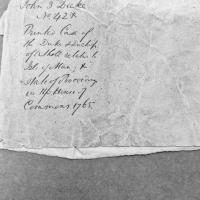 John J Drake
No. 424
Printed Case of
the Duke & Duchess
of Atholl relative to
Isle of Man; &
State of Proceeding
in the House of
Commons 1765